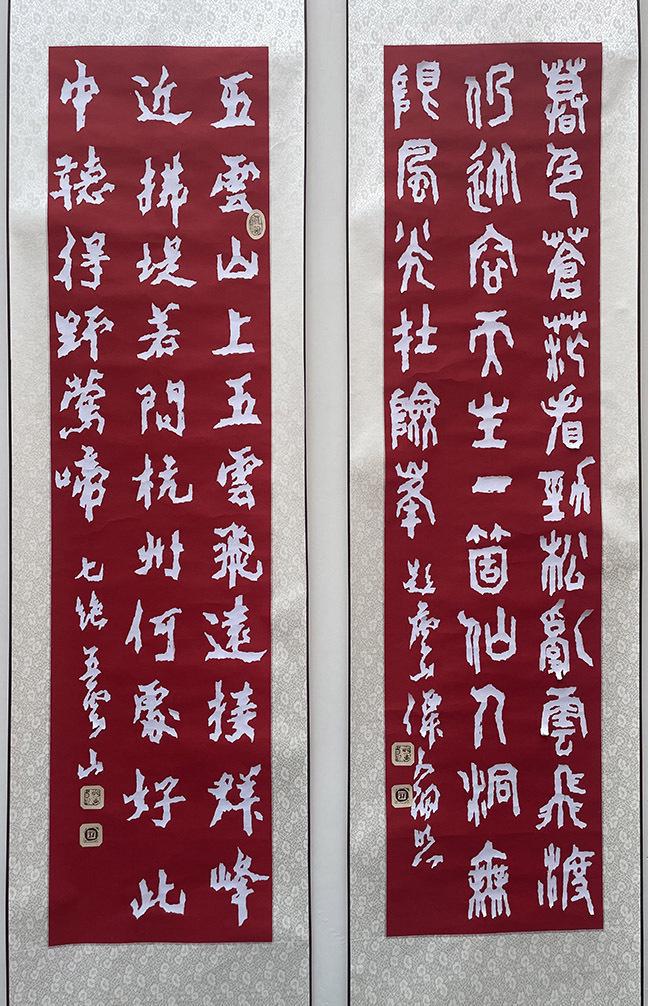 暮色蒼茫看勁松亂雲飛渡
仍從容天生一箇仙人洞無
限風光在險峯
題廬山僊人洞照
五雲山上五雲飛遠接群峰
近拂堤若問杭州何處好此
中聽得野鶯啼
七絕五雲山